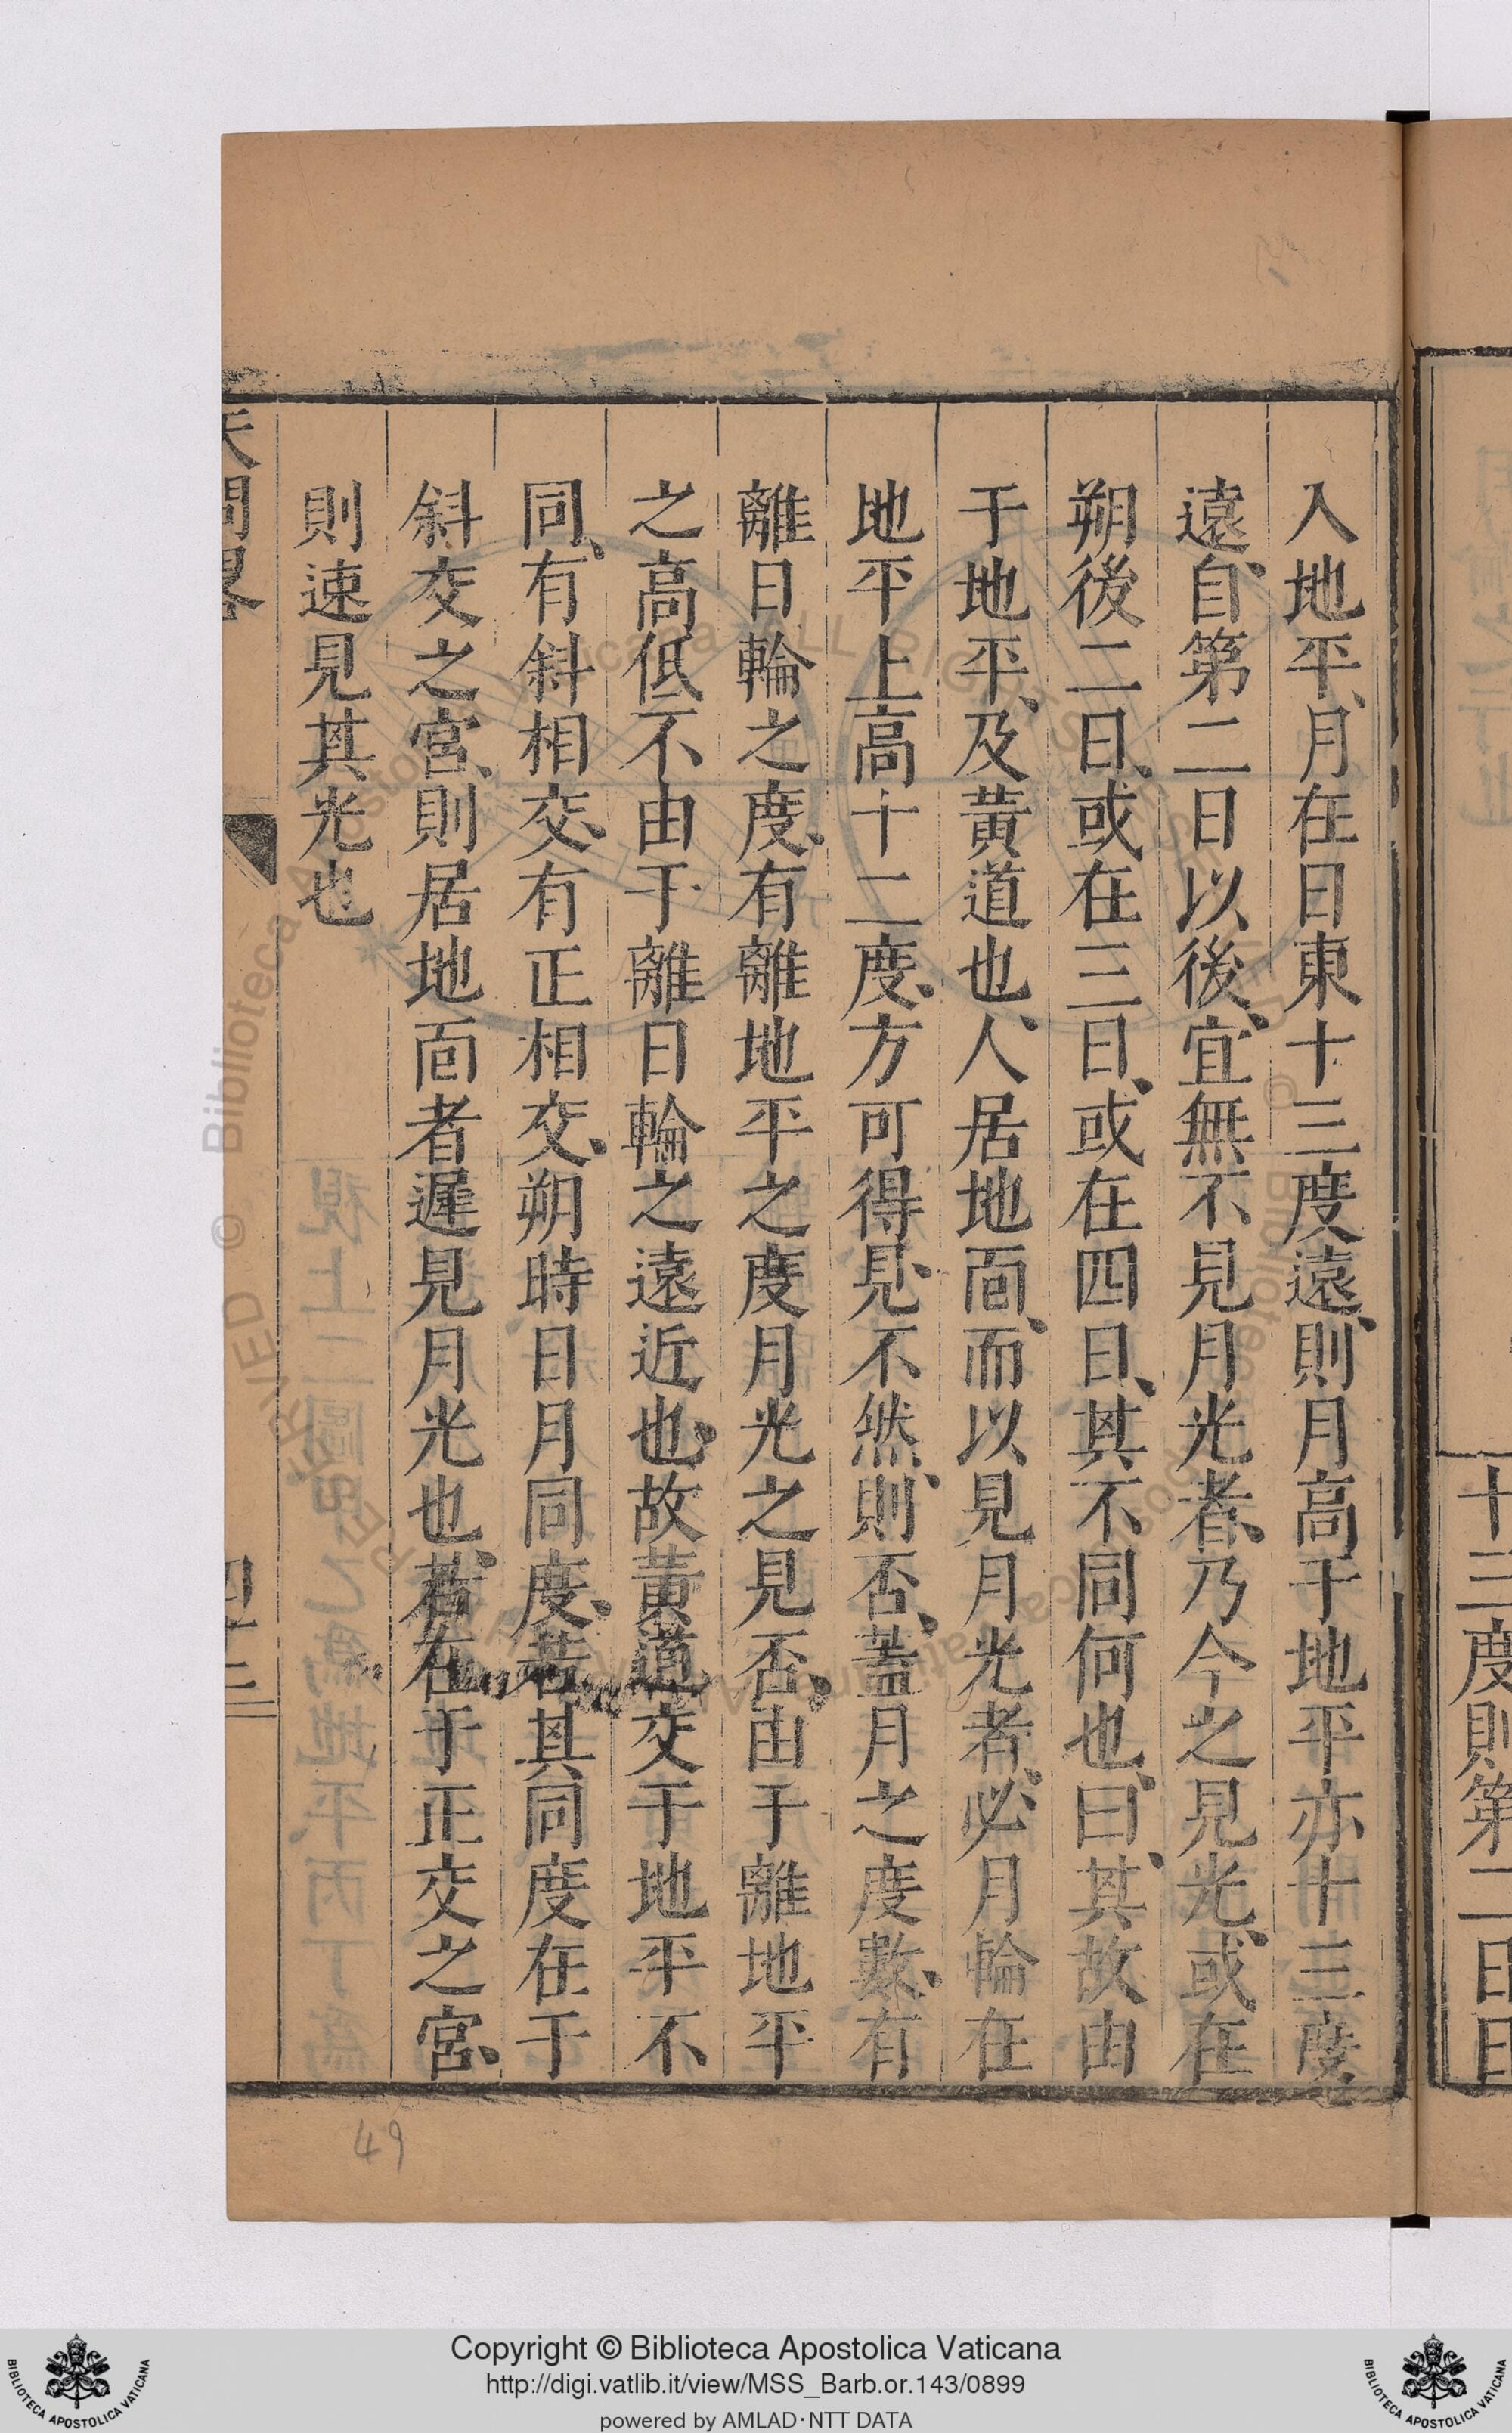 十三度則第二日日
入地平、月在日東十三度遠、則月高于地平亦十三度
遠、自第二日以後、宜無不見月光者、乃今之見光、或在
朔後二日、或在三日、或在四日、其不同何也、曰、其故由
于地平、及黃道也、人居地靣、而以見月光者、必月輪在
地平上高十二度、方可得見、不然、則否、蓋月之度數、有
離日輪之度、有離地平之度月光之見否、由于離地平
之高低不由于離日輪之遠近也、故黃道交于地平不
同、有斜相交、有正相交、朔時日月同度、若其同度在于
斜交之宮、則居地靣者遲見月光也、若在于正交之宮、
則速見其光也
天問畧
四十三
49
Copyright © Biblioteca Apostolica Vaticana
http://digi.vatlib.it/view/MSS_Barb.or.143/0899
powered by AMLAD·NTT DATA
BIBLIOTECA APOSTOLICA VATICANA
BIBLIOTECA APOSTOLICA VATICANA